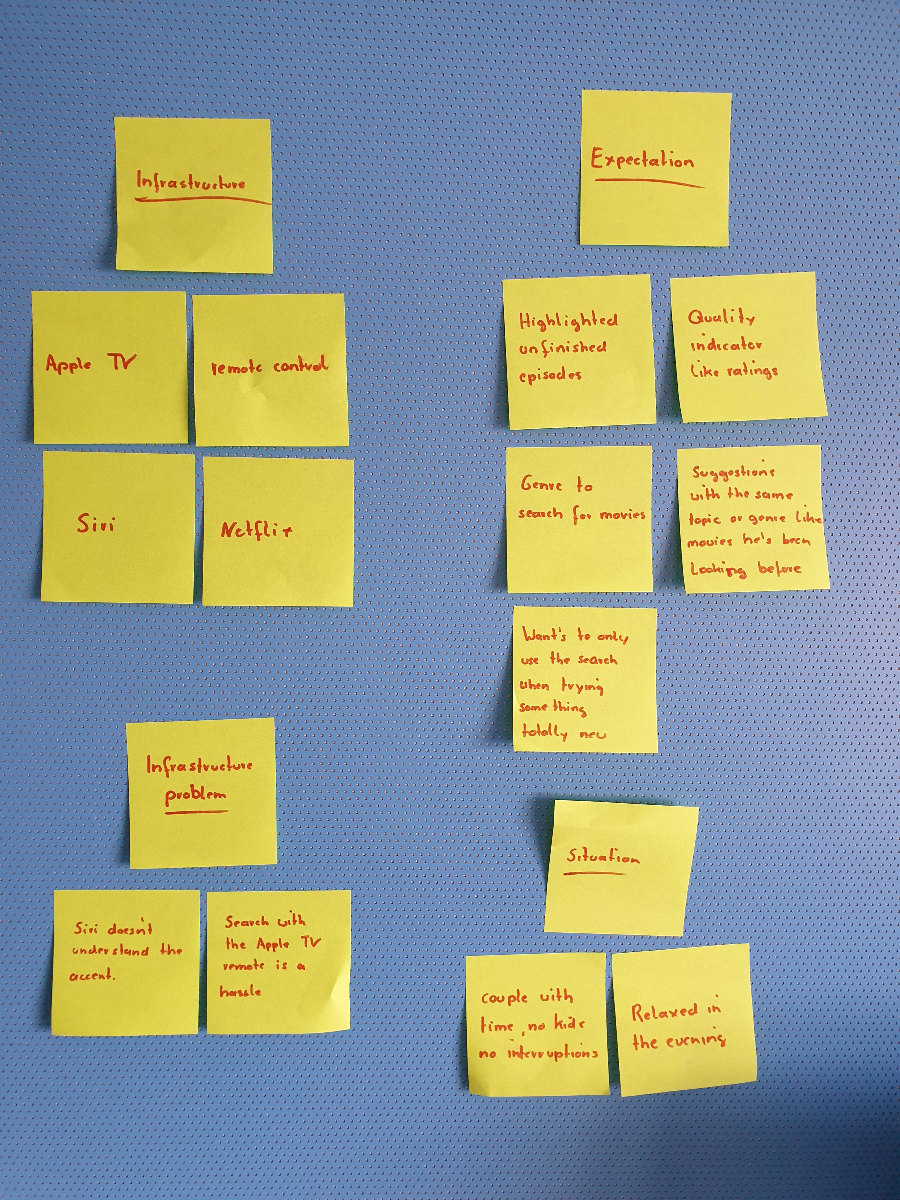 Infrastructure
Apple TV
remote control
Siri
Netflix
Expectation
Highlighted
unfinished
episodes
Quality
indicator
like ratings
Genre to
search for movies
Suggestions
with the same
topic or genre like
movies he's been
looking before
Want's to only
use the search
when trying
something
totally new
Infrastructure
problem
Siri doesn't
understand the
accent.
Search with
the Apple TV
remote is a
hassle
Situation
couple with
time, no kids
no interruptions
Relaxed in
the evening